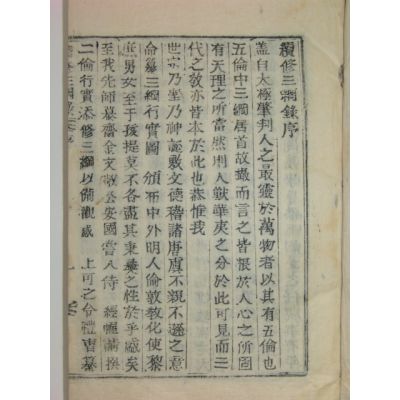 續修三綱錄序
盖自太極肇判人之最靈於萬物者以其有五倫也
五倫中三綱居首故撮而言之皆根於人心之所固
有天理之所當然則人獸華夷之分於此可見而三
代之敎亦皆本於此也恭惟我
世宗乃聖乃神誕敷文德稽諸唐虞不親不遜之意
命纂三綱行實圖 頒布中外明人倫敦敎化使黎
庶男女至于孩提莫不各盡其秉彝之性於乎盛矣
至我先師慕齋金文敬公安國嘗入侍 經幄請撰
二倫行實添修三綱以備觀感 上可之令禮曹纂